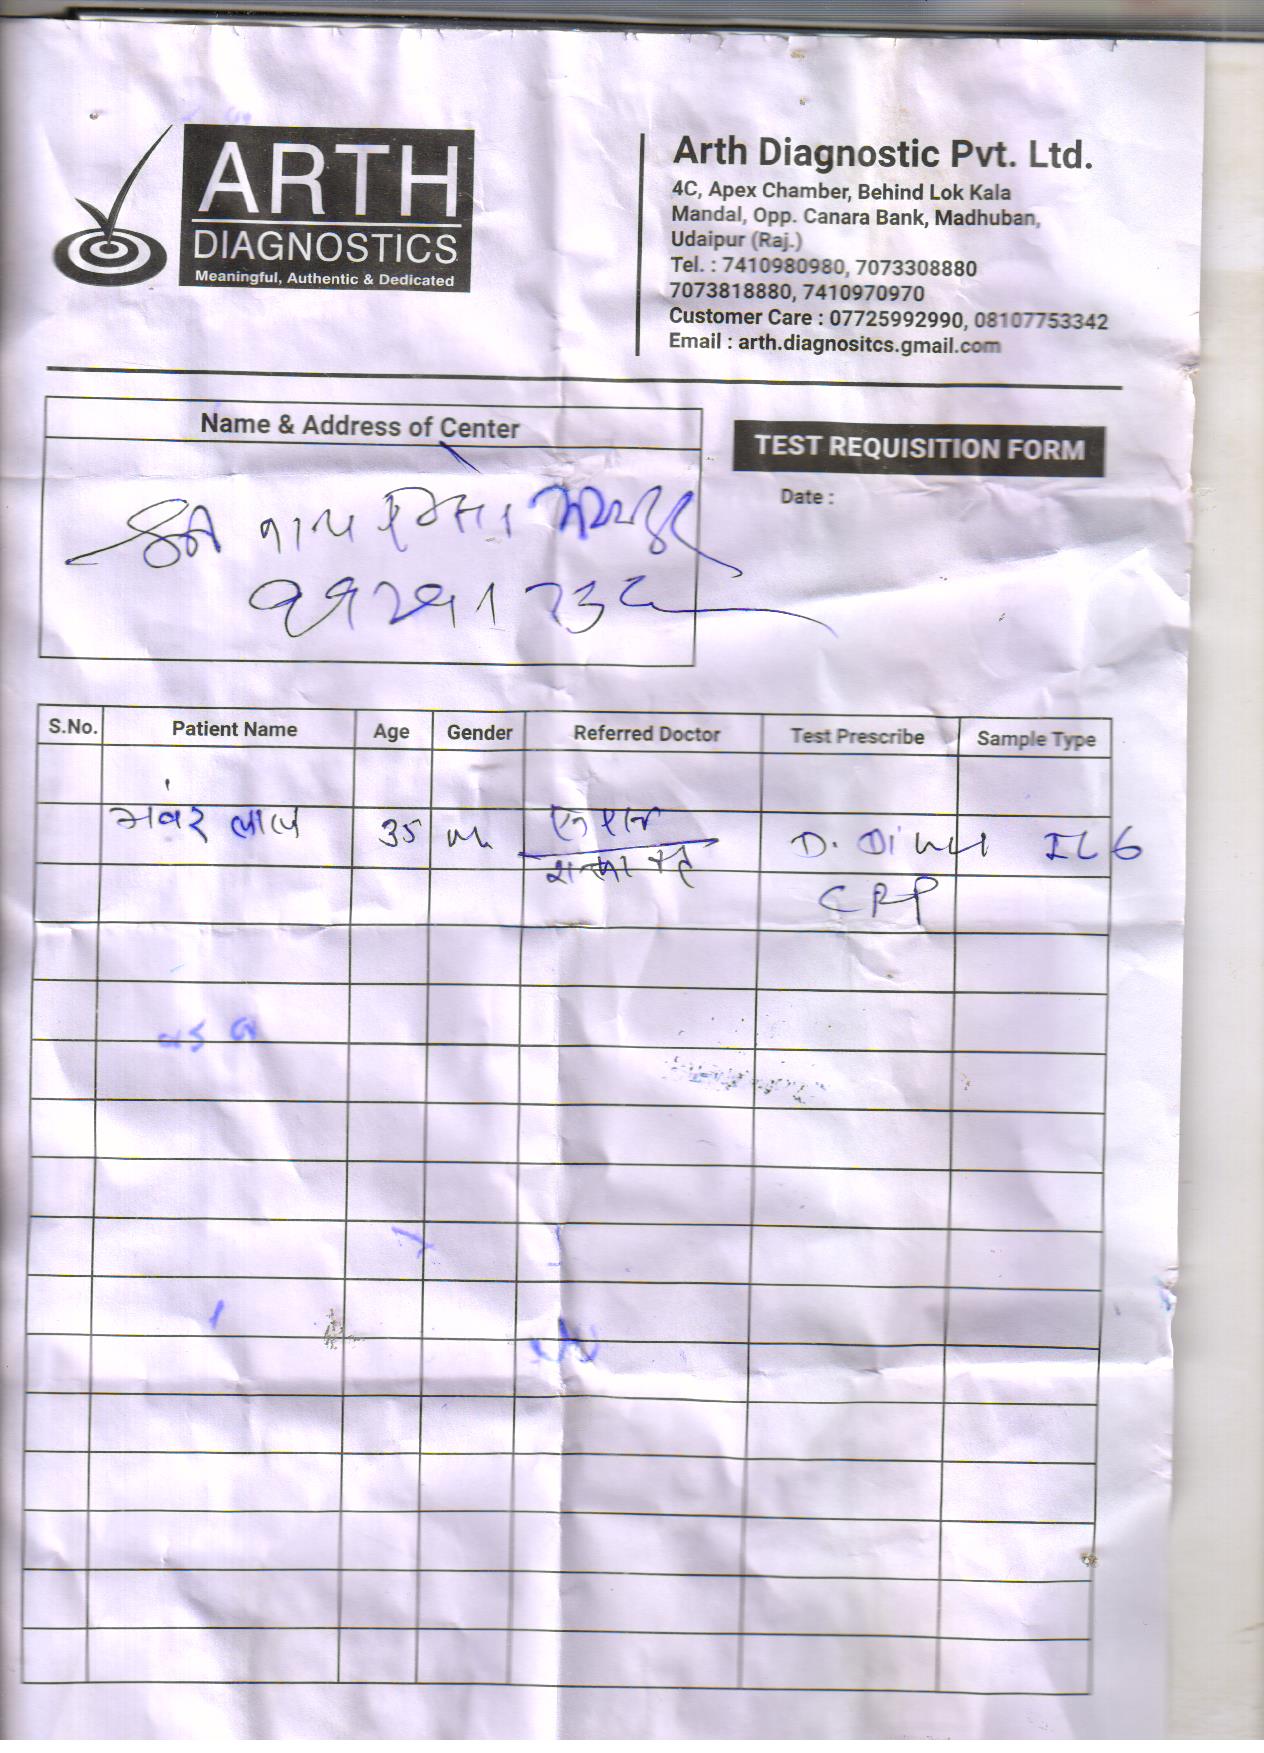 ARTH
DIAGNOSTICS
Meaningful, Authentic & Dedicated
Arth Diagnostic Pvt. Ltd.
4C, Apex Chamber, Behind Lok Kala
Mandal, Opp. Canara Bank, Madhuban,
Udaipur (Raj.)
Tel. : 7410980980, 7073308880
7073818880, 7410970970
Customer Care : 07725992990, 08107753342
Email : arth.diagnositcs.gmail.com
Name & Address of Center
TEST REQUISITION FORM
Date :
S.No. Patient Name Age Gender Referred Doctor Test Prescribe Sample Type
भंवर लाल 35 m D. Dimer IL6
CRP